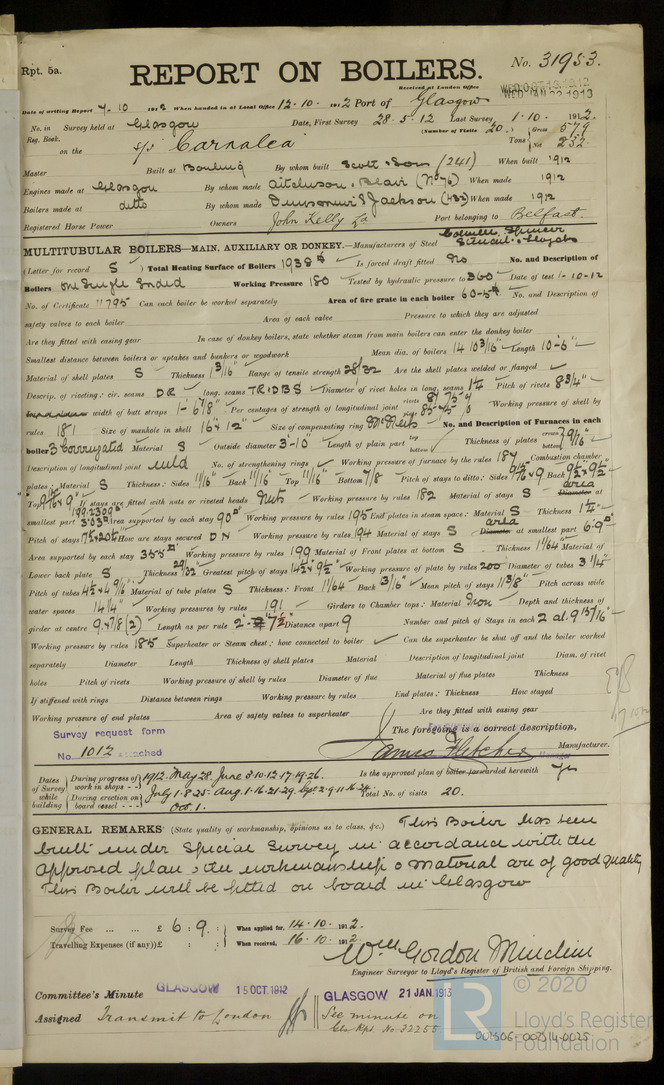 Rpt. 5a.
REPORT ON BOILERS.
No. 31953.
Received at London Office
WED. JAN 22 1913
Date of writing Report 7.10 1912 When handed in at Local Office 12.10. 1912 Port of Glasgow
No. in Survey held at Glasgow Date, First Survey 28.5.12 Last Survey 1.10. 1912.
Reg. Book. (Number of Visits 20.) Gross 579
on the s/s Carnalea Tons Net 232
Master Built at Bowling By whom built Scott & Sons (241) When built 1912
Engines made at Glasgow By whom made Aitchison, Blair (No 76) When made 1912
Boilers made at ditto By whom made Dunsmuir & Jackson (432) When made 1912
Registered Horse Power Owners John Kelly Ld Port belonging to Belfast
MULTITUBULAR BOILERS—MAIN, AUXILIARY OR DONKEY.—Manufacturers of Steel Colville, Spencer
(Letter for record S) Total Heating Surface of Boilers 1938 Is forced draft fitted No No. and Description of
Boilers One Single Ended Working Pressure 180 Tested by hydraulic pressure to 360 Date of test 1-10-12
No. of Certificate 11795 Can each boiler be worked separately Area of fire grate in each boiler 60.5 No. and Description of
safety valves to each boiler Area of each valve Pressure to which they are adjusted
Are they fitted with easing gear In case of donkey boilers, state whether steam from main boilers can enter the donkey boiler
Smallest distance between boilers or uptakes and bunkers or woodwork Mean dia. of boilers 14' 10 3/16" Length 10'-6"
Material of shell plates S Thickness 1 3/16" Range of tensile strength 28/32 Are the shell plates welded or flanged
Descrip. of riveting: cir. seams DR long. seams TRDBS Diameter of rivet holes in long. seams 1 1/4 Pitch of rivets 8 3/4"
width of butt straps 1'-6 7/8" Per centages of strength of longitudinal joint Working pressure of shell by
rules 181 Size of manhole in shell 16 x 12" Size of compensating ring McNeils No. and Description of Furnaces in each
boiler 3 Corrugated Material S Outside diameter 3'-10" Length of plain part top bottom Thickness of plates crown bottom 9/16"
Description of longitudinal joint weld No. of strengthening rings Working pressure of furnace by the rules 187 Combustion chamber
plates: Material S Thickness: Sides 11/16" Back 11/16" Top 11/16" Bottom 7/8 Pitch of stays to ditto: Sides 9 1/2 x 9 Back 9 1/2 x 9 1/2
Top 9 x 9" If stays are fitted with nuts or riveted heads Nuts Working pressure by rules 182 Material of stays S area Diameter at
smallest part Area supported by each stay 90 Working pressure by rules 195 End plates in steam space: Material S Thickness 1 1/4"
Pitch of stays How are stays secured DN Working pressure by rules 194 Material of stays S area Diameter at smallest part 6.9
Area supported by each stay 355 Working pressure by rules 199 Material of Front plates at bottom S Thickness 1 1/64 Material of
Lower back plate S Thickness 29/32 Greatest pitch of stays 14 1/2 x 9 1/2 Working pressure of plate by rules 200 Diameter of tubes 3 1/4
Pitch of tubes 4 1/2 x 4 9/16 Material of tube plates S Thickness: Front 1 1/64 Back 13/16" Mean pitch of stays 11 3/8 Pitch across wide
water spaces 14 1/4" Working pressures by rules 191 Girders to Chamber tops: Material Iron Depth and thickness of
girder at centre 9 x 7/8 (2) Length as per rule 2'-7 1/2 Distance apart 9 Number and pitch of Stays in each 2 at 9 13/16"
Working pressure by rules 185 Superheater or Steam chest; how connected to boiler Can the superheater be shut off and the boiler worked
separately Diameter Length Thickness of shell plates Material Description of longitudinal joint Diam. of rivet
holes Pitch of rivets Working pressure of shell by rules Diameter of flue Material of flue plates Thickness
If stiffened with rings Distance between rings Working pressure by rules End plates: Thickness How stayed
Working pressure of end plates Area of safety valves to superheater Are they fitted with easing gear
Survey request form
No. 1012 attached
The foregoing is a correct description,
James Fletcher Manufacturer.
Dates of Survey while building
During progress of work in shops 1912. May 28. June 3.10.12.17.19.26. Is the approved plan of boiler forwarded herewith Yes
During erection on board vessel July 1.8.25. Aug. 1.16.21.29. Sept. 2.9.11.16.24. Total No. of visits 20.
Oct. 1.
GENERAL REMARKS (State quality of workmanship, opinions as to class, &c.) This Boiler has been
built under Special Survey in accordance with the
approved plan, the workmanship & material are of good quality
This Boiler will be fitted on board in Glasgow
Survey Fee ... ... £ 6 : 9 : When applied for, 14.10. 1912.
Travelling Expenses (if any) £ : : When received, 16.10. 1912.
Wm Gordon Minchin
Engineer Surveyor to Lloyd's Register of British and Foreign Shipping.
Committee's Minute GLASGOW 15 OCT. 1912 GLASGOW 21 JAN. 1913
Assigned Transmit to London See minute on
Gls Rpt. No 32255
© 2020
LR
Lloyd's Register
Foundation
002506-002514-0025